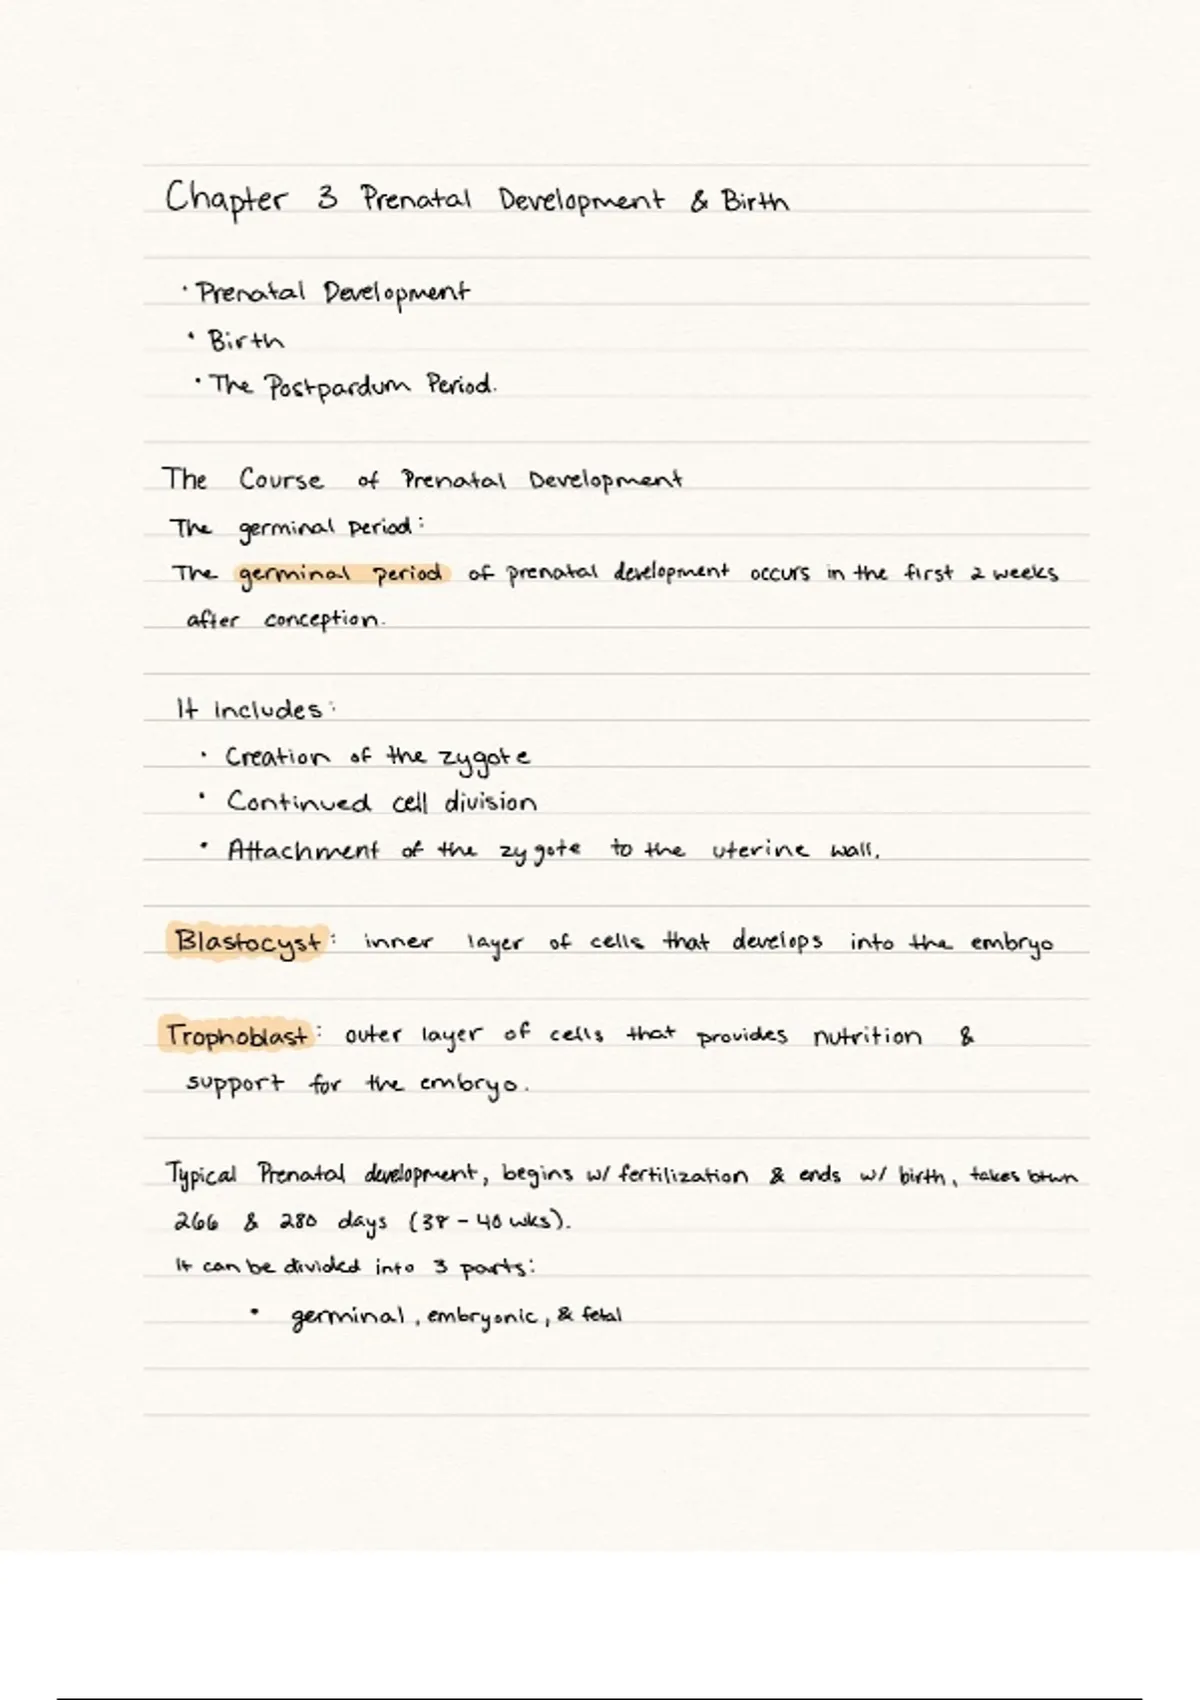 Chapter 3 Prenatal Development & Birth
· Prenatal Development
· Birth
· The Postpardum Period.
The Course of Prenatal Development
The germinal period:
The germinal period of prenatal development occurs in the first 2 weeks
after conception.
It includes:
· Creation of the zygote
· Continued cell division
· Attachment of the zygote to the uterine wall.
Blastocyst: inner layer of cells that develops into the embryo
Trophoblast: outer layer of cells that provides nutrition &
support for the embryo.
Typical Prenatal development, begins w/ fertilization & ends w/ birth, takes btwn
266 & 280 days (38-40 wks).
It can be divided into 3 parts:
· germinal, embryonic, & fetal